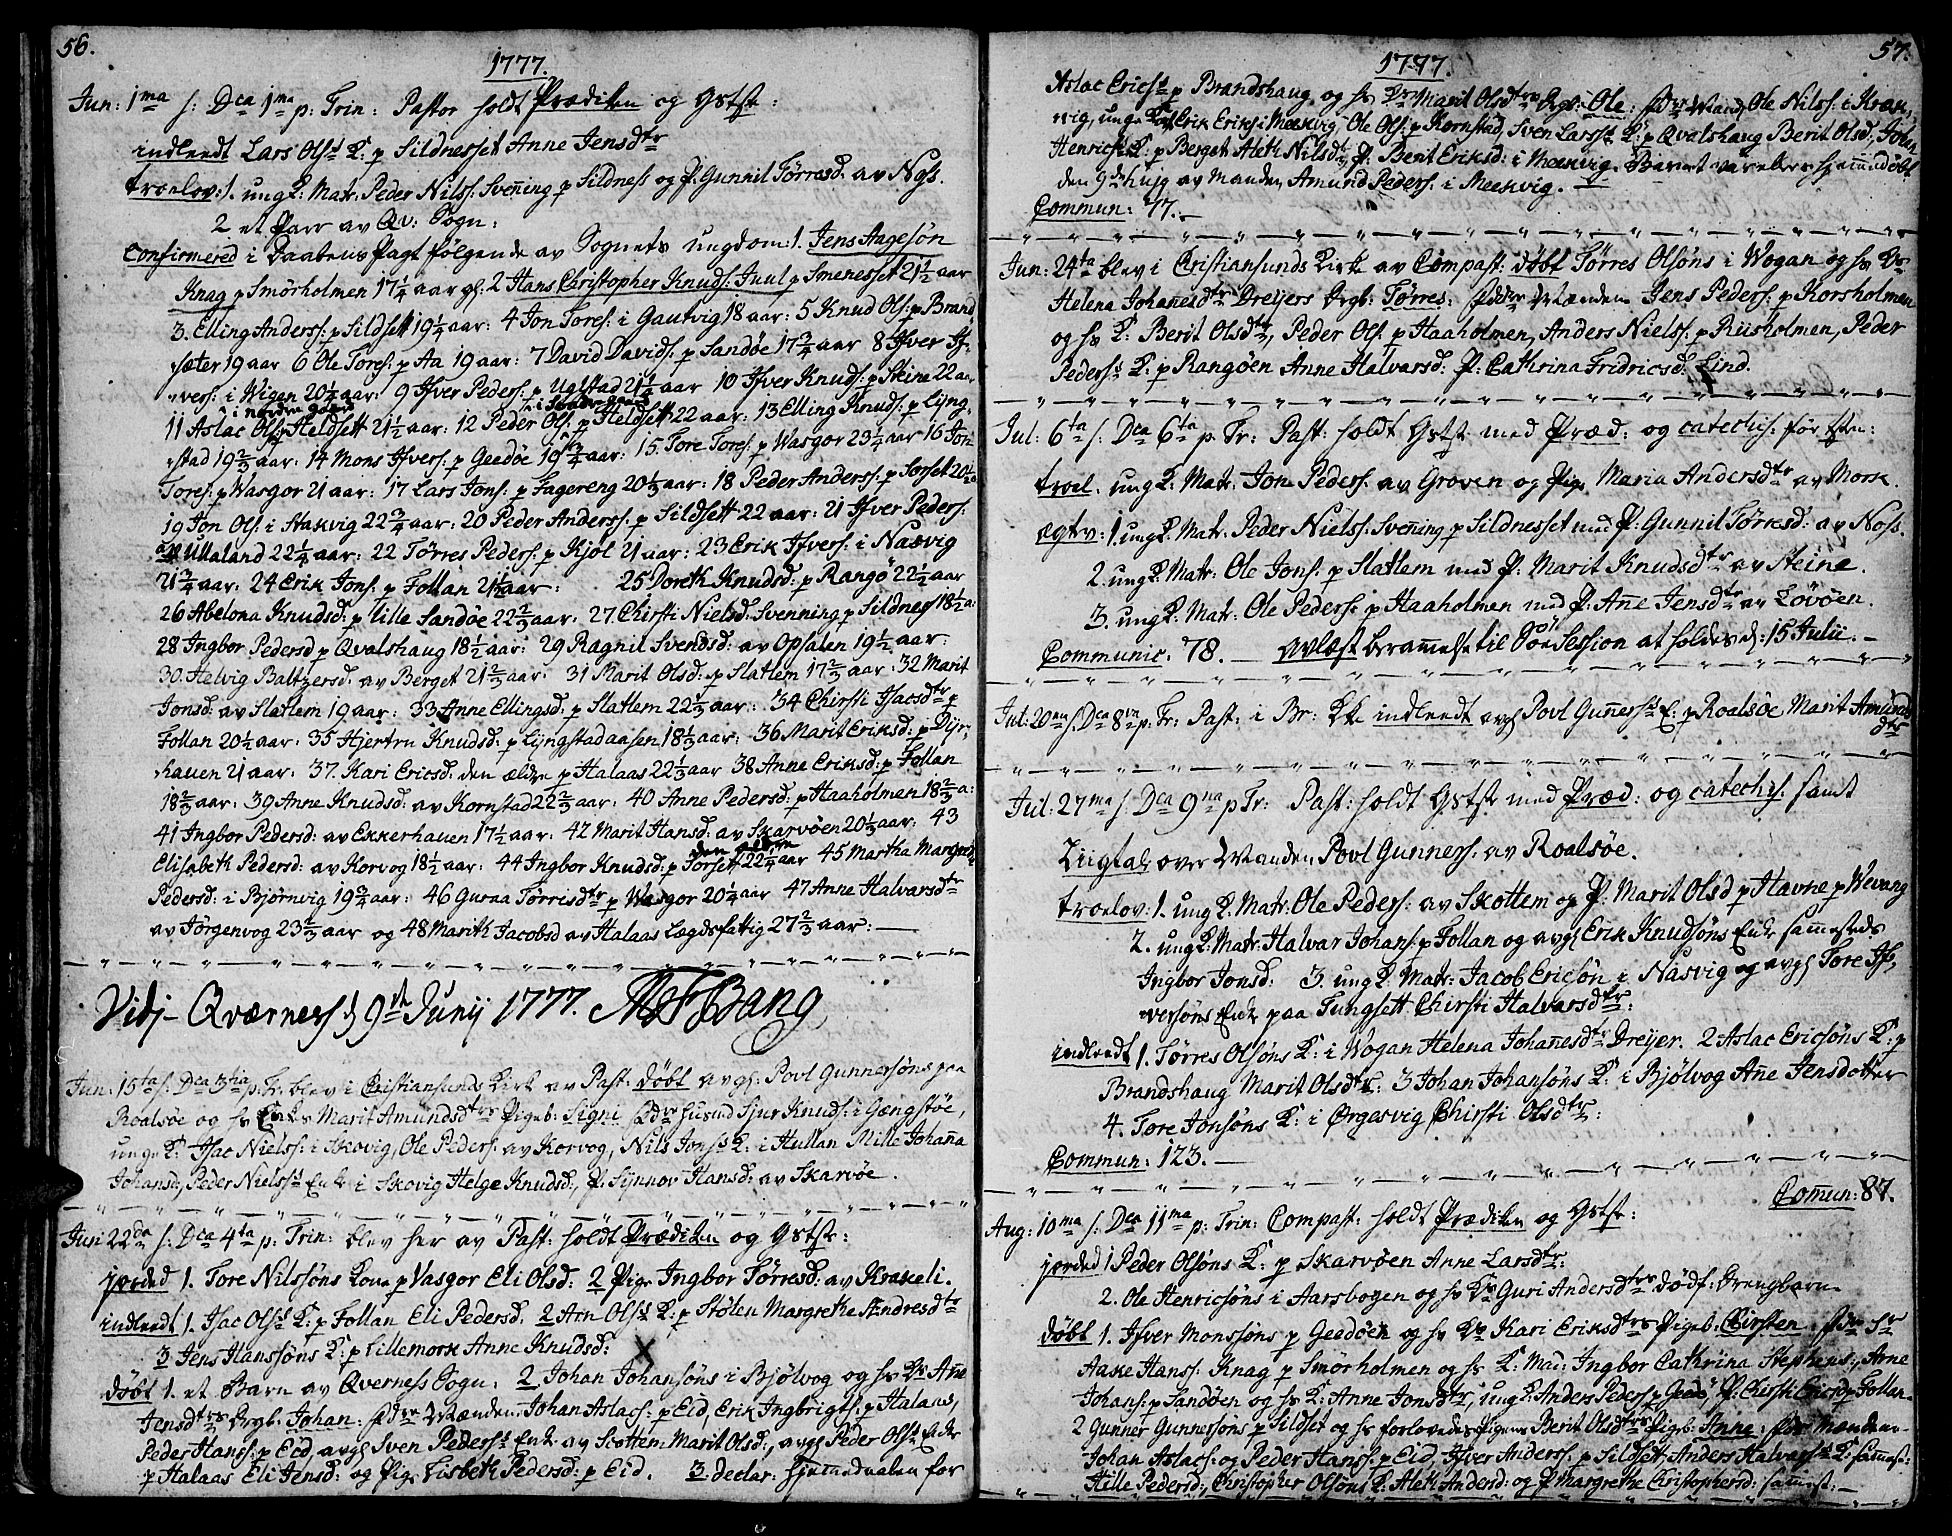 56.
1777.
Jun: 1ma s: Dca 1ma p: Trin: Pastor holdt Prædiken og Gstste:
indleedt Lars Olss K: p Sildnesset Anne Jensdtr
troelov: 1. ung K: Matr: Peder Nilss: Svenning p Sildness og P: Gunnil Törresd: av Noss.
2 et Parr av Qv: Sogn:
Confirmered i Daabens Pagt følgende av Sognets ungdom: 1. Jens Aagesön
Knag p Smörholmen 17 1/4 aar gl: 2 Hans Christopher Knuds: Juul p Smenesset 21 1/2 aar
3. Elling Anderss: p Sildsett 19 1/4 aar: 4 Jon Tores: i Gautvig 18 aar: 5 Knud Ols: p Brand
sæter 19 aar 6 Ole Tores: p Aa 19 aar: 7 David Davids: p Sandöe 17 3/4 aar 8 Ifver If-
vers: i Wigen 20 1/4 aar: 9 Ifver Peders: p Uglstad 21 1/4 aar 10 Ifver Knuds: p Steine 22 aar
11 Aslac Ols: p Heldsett i nordre gaard 21 1/2 aar: 12 Peder Ols: p Heldsett 22 aar: 13 Elling Knuds: p Lyng-
stad 19 2/3 aar: 14 Mons Ifvers: p Geedöe 19 3/4 aar: 15. Tore Tores: p Wasgor 23 1/4 aar 16 Jon
Tores: p Wasgor 21 aar: 17 Lars Jons: p Fagereng 20 1/3 aar: 18 Peder Anderss: p Sorsett 20
19 Jon Ols: i Aakvig 22 3/4 aar: 20 Peder Anderss: p Sildsett 22 aar: 21 Ifver Peders:
av Ullaland 22 1/4 aar: 22 Törres Peders: p Kjöl 21 aar: 23 Erik Ifvers: i Nasvig
21 3/4 aar: 24 Erik Jons: p Follan 21 1/2 aar: 25 Doreth Knudsd: p Rangö 22 1/2 aar
26 Abelona Knudsd: p lille Sandöe 22 2/3 aar. 27. Chirsti Nielsd: Svenning p Sildness 18 1/2 a:
28 Ingbor Pedersd p Qvalshaug 18 1/2 aar: 29 Ragnil Svendsd: av Opsalen 19 1/2 aar:
30. Helvig Baltzersd: av Berget 21 2/3 aar: 31 Marit Olsd: p Slatlem 17 2/3 aar: 32 Marit
Jonsd: av Slatlem 19 aar: 33 Anne Ellingsd: p Slatlem 22 1/2 aar: 34 Chirsti Isacsdtr p
Follan 20 1/2 aar: 35 Hjertru Knudsd: p Lyngstadaasen 18 1/3 aar: 36 Marit Eriksd: p Dyr-
hauen 21 aar: 37. Kari Ericsd: den ældre p Halaas 22 1/3 aar 38 Anne Eriksd: p Follan
18 2/3 aar: 39 Anne Knudsd: av Kornstad 22 2/3 aar: 40 Anne Pedersd: p Haaholmen 18 2/3 a:
41 Ingbor Pedersd: av Ekkerhauen 17 1/2 aar: 42 Marit Hansd: av Skarvöen 20 1/3 aar: 43
Elisabeth Pedersd: av Korvog 18 1/2 aar: 44 Ingbor Knudsd: den ældre p Torsett 22 1/4 aar 45 Martha Margrethe
Pedersd: i Bjørnvig 19 3/4 aar: 46 Guraa Törrisdtr p Wasgor 20 1/4 aar 47 Anne Halvarsdtr
av Jörgenvog 23 2/3 aar og 48 Marith Jacobsd av Halaas Lagdsfattig 27 2/3 aar:
Vidj- Qværness d 9de Junij 1777. Bang
Jun: 15ta s: Dca 3tia p: Tr: blev i Cristiansunds Kirke av Past: døbt avgl: Povl Gunnersöns paa
Roalsöe og hs Enkes Marit Amundsdtrs Pigeb: Signe fddr huusd Sjur Knuds: i Gængstöe,
unge K: Isac Niels: i Skovig, Ole Peders: av Korvog, Nils Jonss K: i Hullan Mille Johanna
Johansd:, Peder Nielss Enke i Skovig Helge Knudsd:, P: Synnov Hansd: av Skarvöe.
Jun: 22da s: Dca 4ta p: Trin: blev her av Past: holdt Prædiken og Gstste:
jorded 1. Tore Nilssöns Kone p Vasgor Eli Olsd: 2 Pige Ingbor Törresd: av Krakeli.
indleedt 1. Isac Olss K: p Follan Eli Pedersd. 2 Arn Olss K: p Ströten Margrethe Andresdtr
3 Jens Hanssöns K: p Lillemork Anne Knudsd:
döbt 1. et Barn av Qverness Sogn: 2 Johan Johansöns i Bjölvog og hs Ks Anne
Jensdtrs Drgb: Johan: fddr Mænden: Johan Aslacs: p Eid, Erik Ingbrigts: p Haland,
Peder Hans: p Eid avgl Sven Pederss Enke av Skottem Marit Olsd:, avgl Peder Olss Enke
p Halaas Eli Jensd: og Pige Lisbeth Pedersd: p Eid. 3. declar: hjemmedaaben for
57.
1777.
Aslac Ericss p Brandshaug og hs Ks Marit Olsdtrs Drgb: Ole: fddr Mænd Ole Nils: i Kran-
vig, unge K Erik Eriks i Meekvig, Ole Ols: p Kornstad, Sven Larss K: p Qvalshaug Berit Olsd, Johan
Henrichs K: p Berget Aleth Nilsdtr P: Berit Eriksd: i Meekvig. Barnet var ellers hjemmedöbt
den 9de hujg av Manden Amund Peders: i Meekvig.
Commun: 77.
Jun: 24ta blev i Cristiansunds Kirke av Compast: döbt Törres Olsöns i Wogan og hs Ks
Helena Johanesdtrs Dreyers Drgb: Törres: fddr Mænden Jens Peders: p Korsholmen
og hs K: Berit Olsdtr, Peder Ols: p Haaholmen, Anders Niels: p Riisholmen, Peder
Peders K: p Rangöen Anne Halvarsd: P: Cathrina Fridricsd: Lind.
Jul: 6ta s: Dca 6ta p: Tr: Past: holdt Gstst med Præd: og catechis: for
troel. ung K: Matr: Jon Peders: av Groven og Pige Maria Andersdtr av Mork.
ægtv: 1. ung K: Matr: Peder Nielss: Svenning p Sildnesset med P: Gunnil Törresd: av Noss.
2. ung K: Matr: Ole Jons: p Slatlem med P: Marit Knudsdtr av Steine.
3. ung K: Matr: Ole Peders: p Haaholmen med P: Anne Jensdtr av Lövöen.
Communic: 78. — avlæst beramelse til Söe Session at holdes d: 15 Julii.
Jul: 20ma s: Dca 8va p: Tr: Past: i Br: Kke indleedt avgl Povl Gunnerss E: p Roalsöe Marit Amunds
dtr
Jul: 27ma s: Dca 9na p Tr: Past: holdt Gstste med Præd: og catechis: samt
Liigtale over Manden Povl Gunners: av Roalsöe.
troelov: 1. ung K: Matr: Ole Peders: av Skottem og P: Marit Olsd p Havne p Wevang
2. ung K: Matr: Halvar Johans: p Follan og avgl Erik Knudsöns Enke sammesteds
Ingbor Jonsd: 3. ung K: Matr: Jacob Ericsön i Nasvig og avgl Tore If-
versöns Enke paa Tungsett Chirsti Halvarsdtr:
indleedt 1. Törres Olsöns K: i Wogan Helena Johanesdtr Dreyer. 2 Aslac Ericsöns K: p
Brandshaug Marit Olsdtr: 3 Johan Johansöns K: i Bjölvog Ane Jensdotter
4. Tore Jonsöns K: i Örgesvig Chirsti Olsdtr:
Commun: 123.
Comun: 87.
Aug: 10ma s: Dca 11ma p: Trin: Compast: holdt Prædiken og Gstste:
jorded 1 Peder Olsöns K: p Skarvöen Anne Larsdtr:
2. Ole Henricsöns i Aarsbogen og hs Ks Guri Andersdtrs dödf: Drengbarn
döbt 1. Ifver Monssöns p Geedöen og hs Ks Kari Eriksdtrs Pigeb: Chirsten. fddr Hr
Aake Hans: Knag p Smörholmen og hs K: Mad: Ingbor Cathrina Stephens:, Arne
Johans: p Sandöen og hs K: Anne Jonsdtr, ung K: Anders Peders p Geedö, P: Chirsti Ericsd p Follan.
2 Gunner Gunnersöns p Sildset og hs forlovedes Pigens Berit Olsdtrs Pigeb: Anne: fddr Mænden
Johan Aslacs: og Peder Hans: p Eid, Ifver Anders: p Sildset, Anders Halvarss K: sammest:
Hille Pedersd:, Christopher Olsöns K: Aleth Andersd: og P Margrethe Christophersd: sammest: